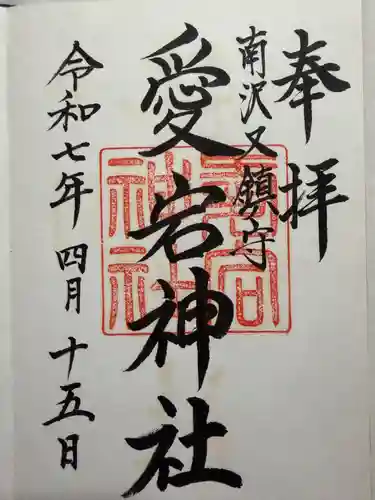 奉拝
南沢又鎮守
愛宕神社
令和七年 四月 十五日